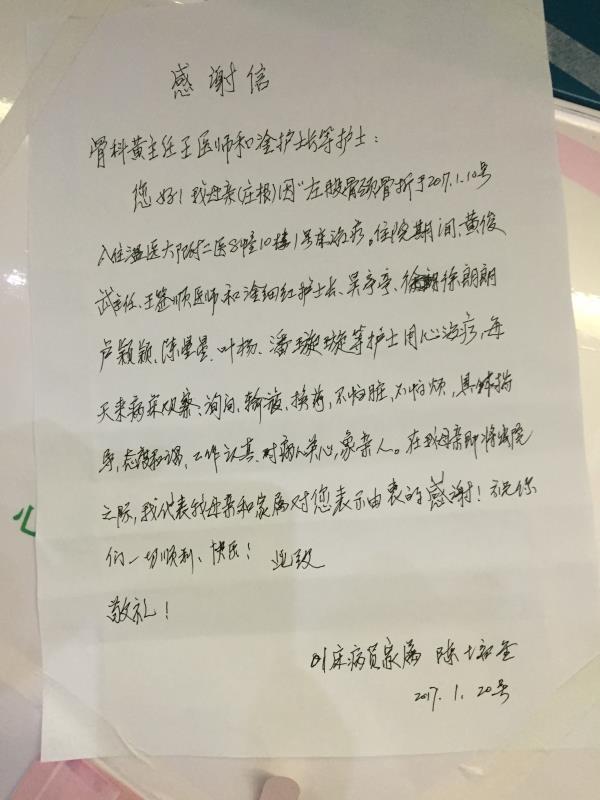 感谢信
骨科黄主任王医师和涂护士长等护士：
您好！我母亲(庄根)因“左股骨颈骨折于2017.1.10号
入住温医大附二医8幢10楼1号床治疗。住院期间、黄俊
武主任、王签顺医师和涂细红护士长、吴亭亭、徐朗朗
卢颖颖、陈星星、叶杨、潘璇璇等护士用心治疗，每
天来病床观察、询问、输液、换药，不怕脏，不怕烦，具体指
导，态度和谒，工作认真、对病人关心，象亲人。在我母亲即将出院
之际，我代表我母亲和家属对您表示由衷的感谢！祝你
们一切顺利、快乐！ 此致
敬礼！
01床病员家属 陈
2017.1.20号
心